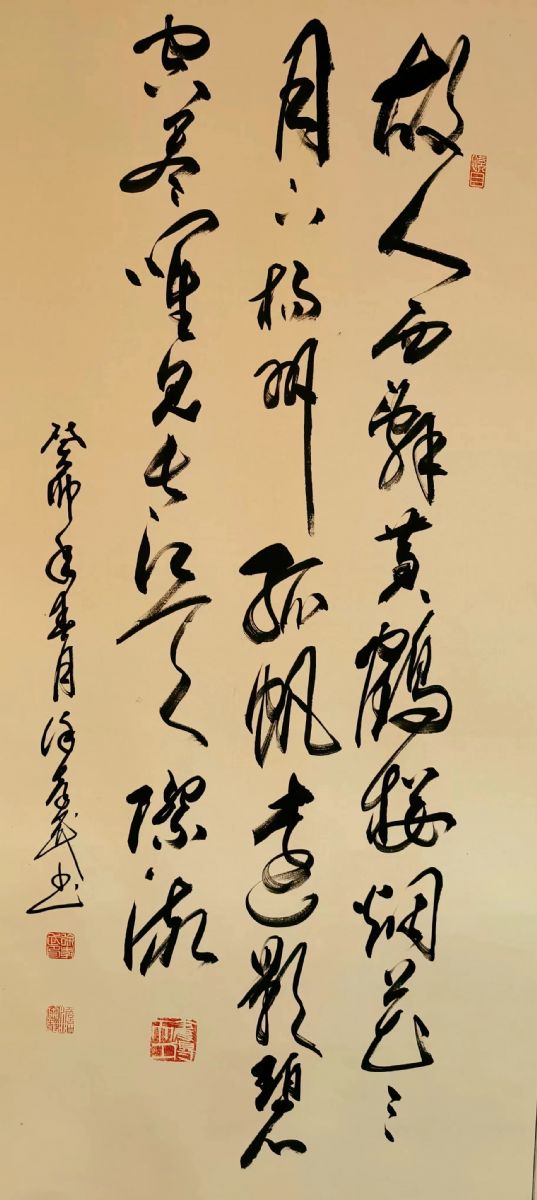 故人西辭黃鶴樓烟花三
月下楊州孤帆遠影碧
空盡唯見長江天際流
癸卯年春月徐書